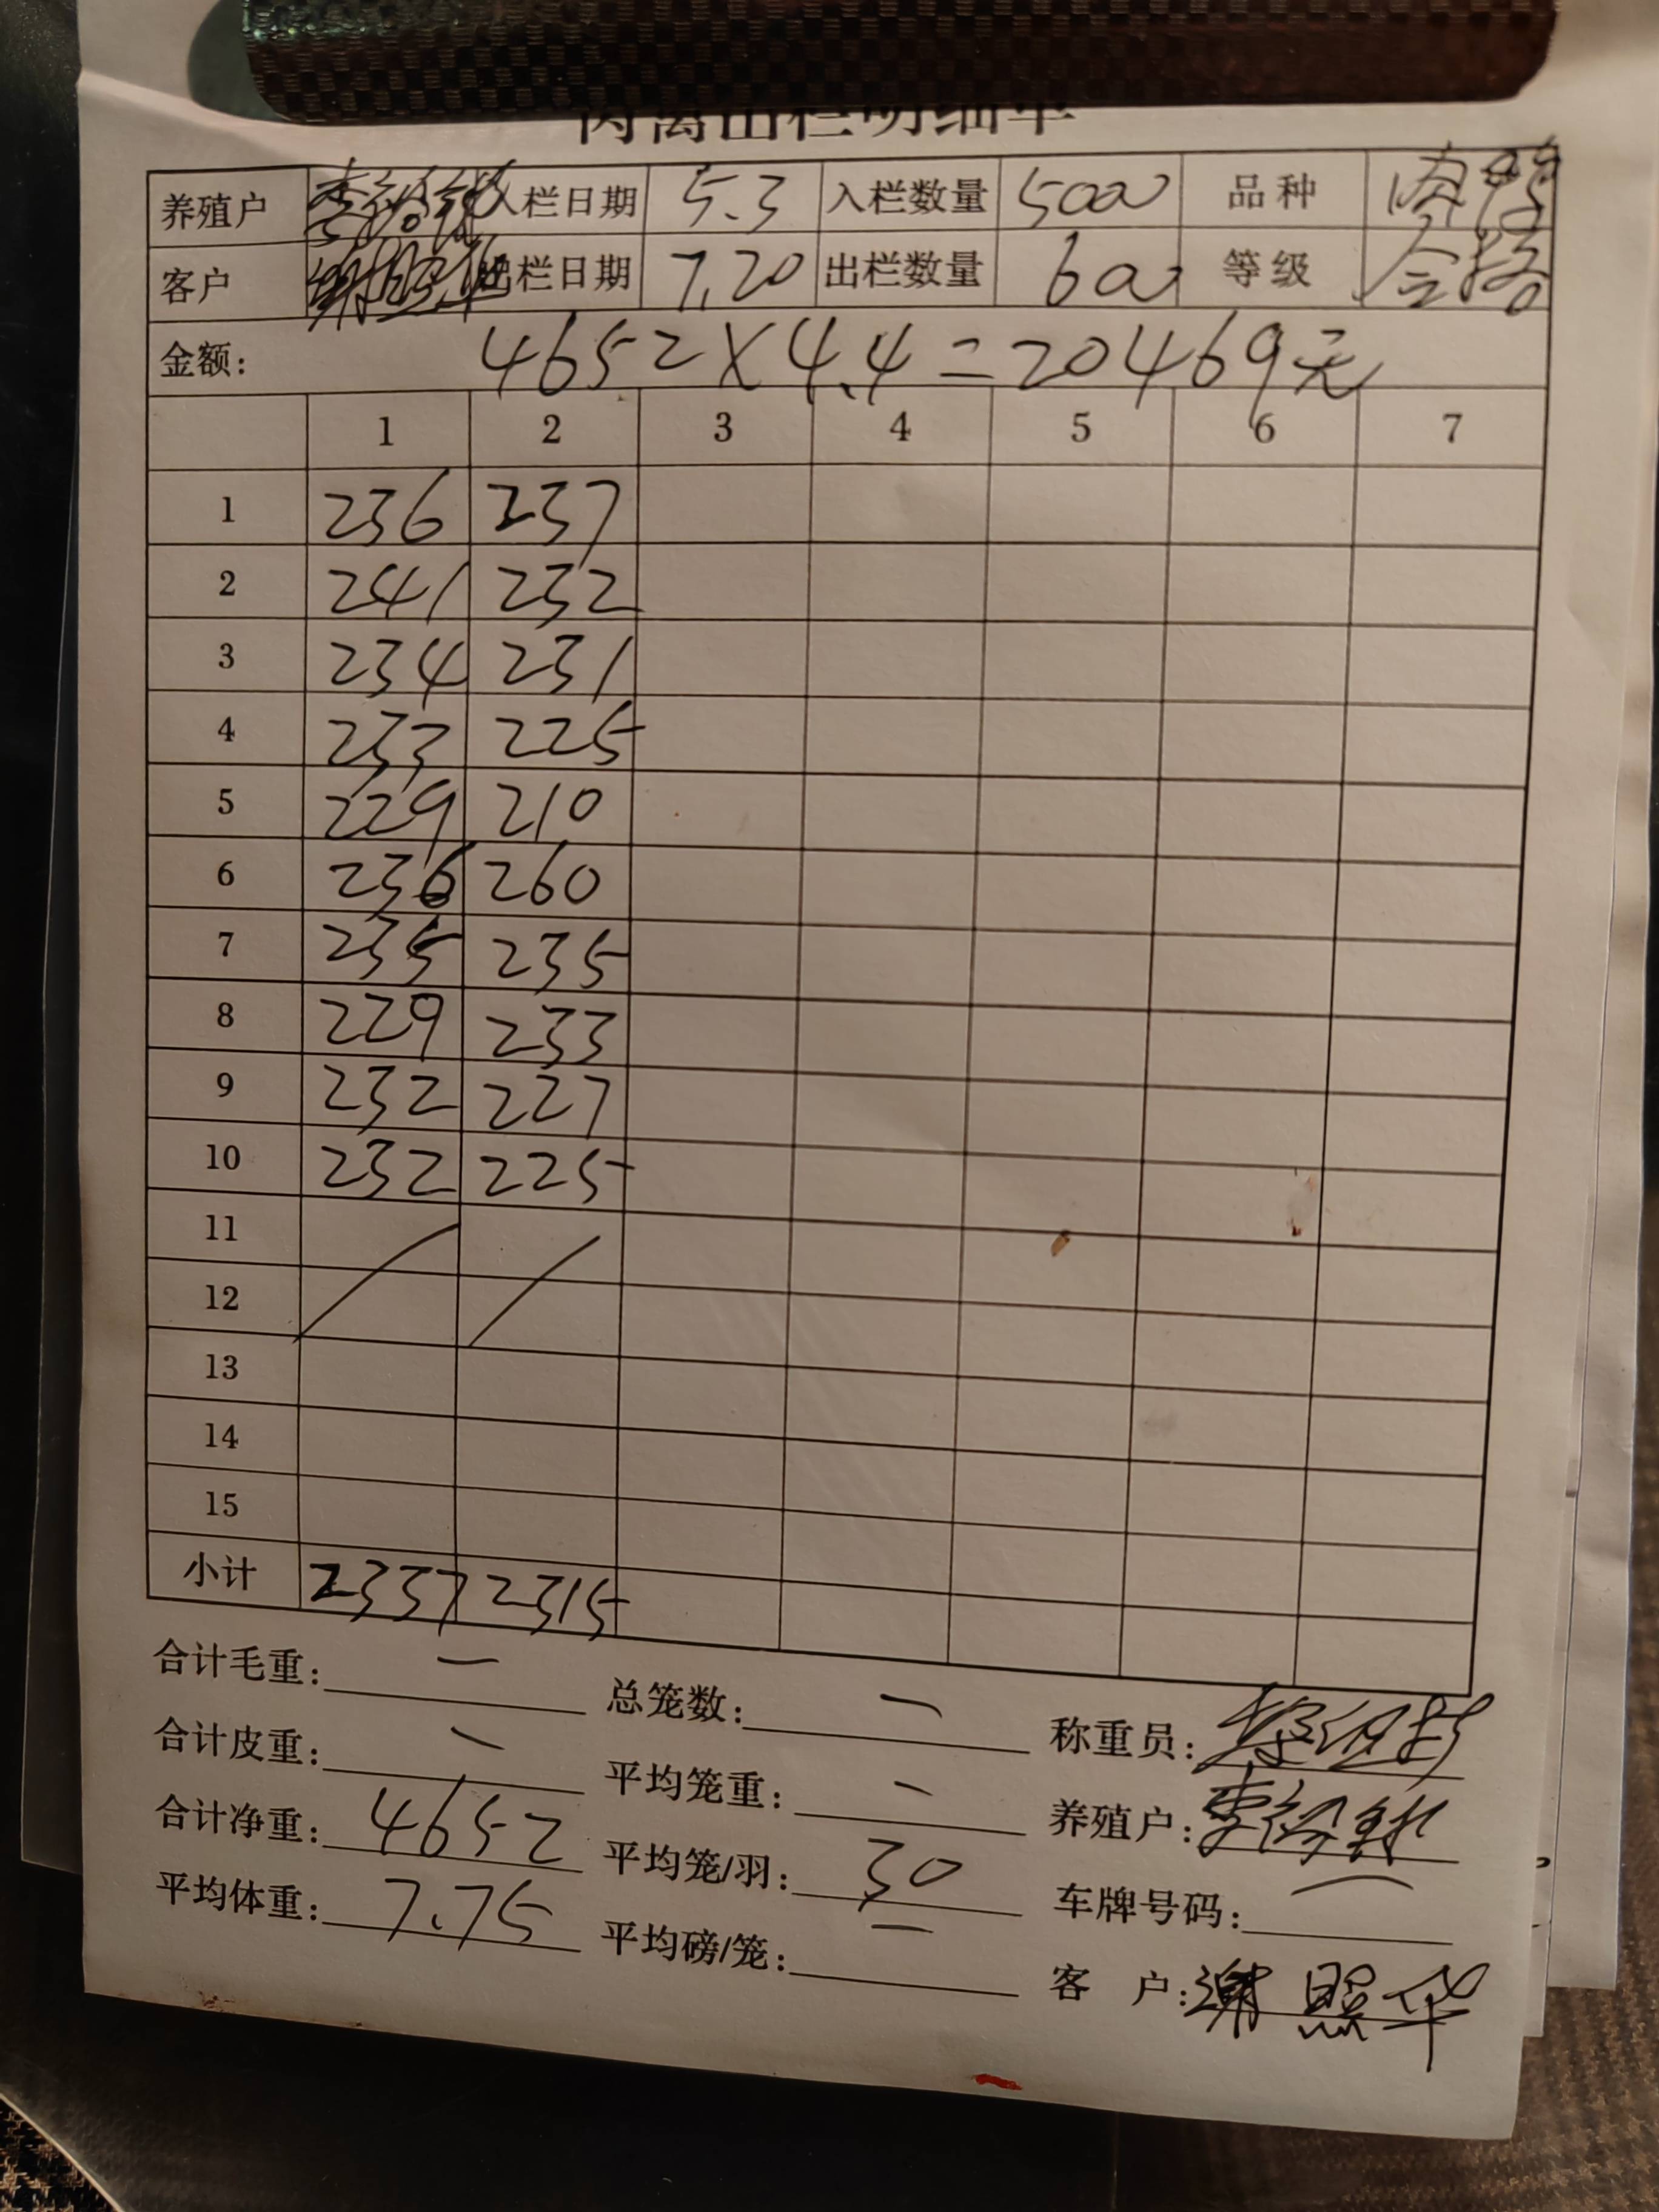 肉禽出栏明细单
养殖户 入栏日期 5.3 入栏数量 5000 品种
客户 谢照华 出栏日期 7.20 出栏数量 600 等级 合格
金额: 4652×4.4=20469元
1 2 3 4 5 6 7
1 236 237
2 241 232
3 234 231
4 233 225
5 229 210
6 236 260
7 235 235
8 229 233
9 232 227
10 232 225
11
12
13
14
15
小计 2337 2315
合计毛重: — 总笼数: — 称重员:
合计皮重: — 平均笼重: — 养殖户:
合计净重: 4652 平均笼/羽: 30 车牌号码: —
平均体重: 7.75 平均磅/笼: — 客 户: 谢照华